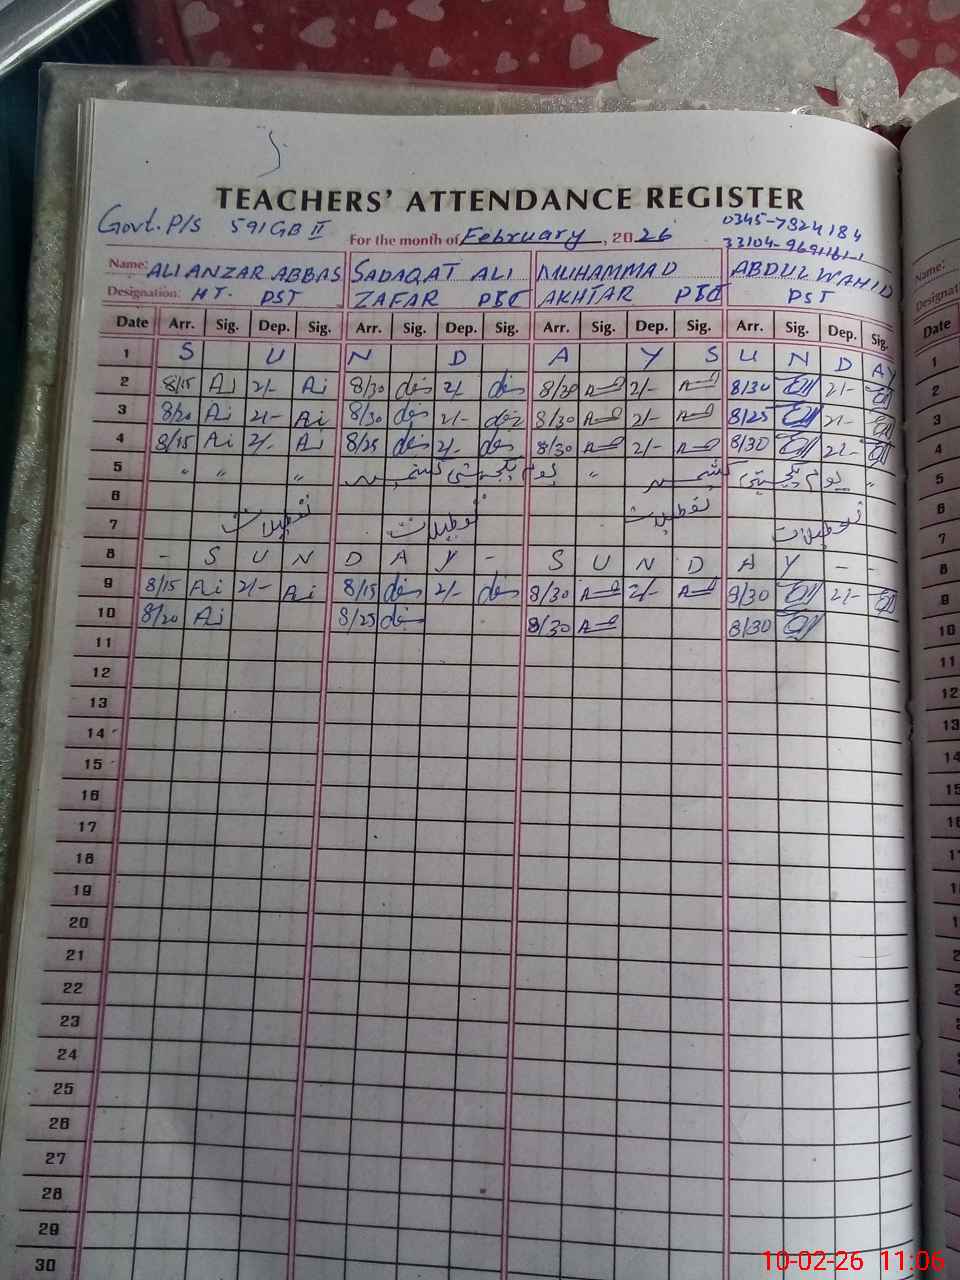 TEACHERS' ATTENDANCE REGISTER
Govt. P/S 591 GB II
For the month of February, 2026
0345-7824184
Name: ALI ANZAR ABBAS SADAQAT ALI MUHAMMAD ABDUL WAHID
Designation: HT. PST ZAFAR AKHTAR PST
Date Arr. Sig. Dep. Sig. Arr. Sig. Dep. Sig. Arr. Sig. Dep. Sig. Arr. Sig. Dep. Sig.
1 S U N D A Y S U N D A Y
2 8/15 2/- 8/30 2/- 8/30 2/- 8/30 2/-
3 8/20 2/- 8/30 2/- 8/30 2/- 8/25 2/-
4 8/15 2/- 8/25 2/- 8/30 2/- 8/30 2/-
5 " " " یوم یکجہتی کشمیر " یوم یکجہتی کشمیر "
6
7 تعطیلات تعطیلات تعطیلات تعطیلات
8 - S U N D A Y - S U N D A Y - -
9 8/15 2/- 8/15 2/- 8/30 2/- 8/30 2/-
10 8/20 8/25 8/30 8/30
11
12
13
14
15
16
17
18
19
20
21
22
23
24
25
26
27
28
29
30
Name:
Date
1
2
3
4
5
6
7
8
9
10
11
12
13
14
10-02-26 11:06